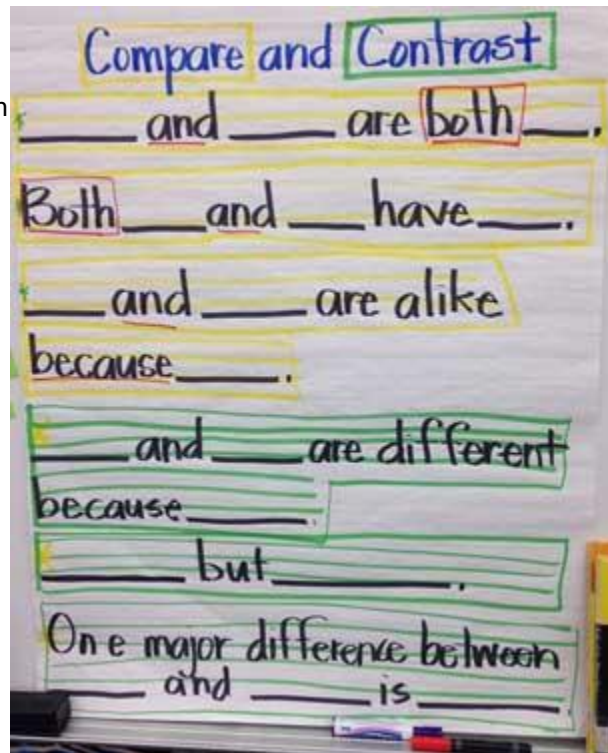 Compare and Contrast
____ and ____ are both ___.
Both ___ and ___ have ___.
___ and ____ are alike
because ____.
____ and ____ are different
because ____.
____ but ____.
One major difference between
____ and ____ is ____.